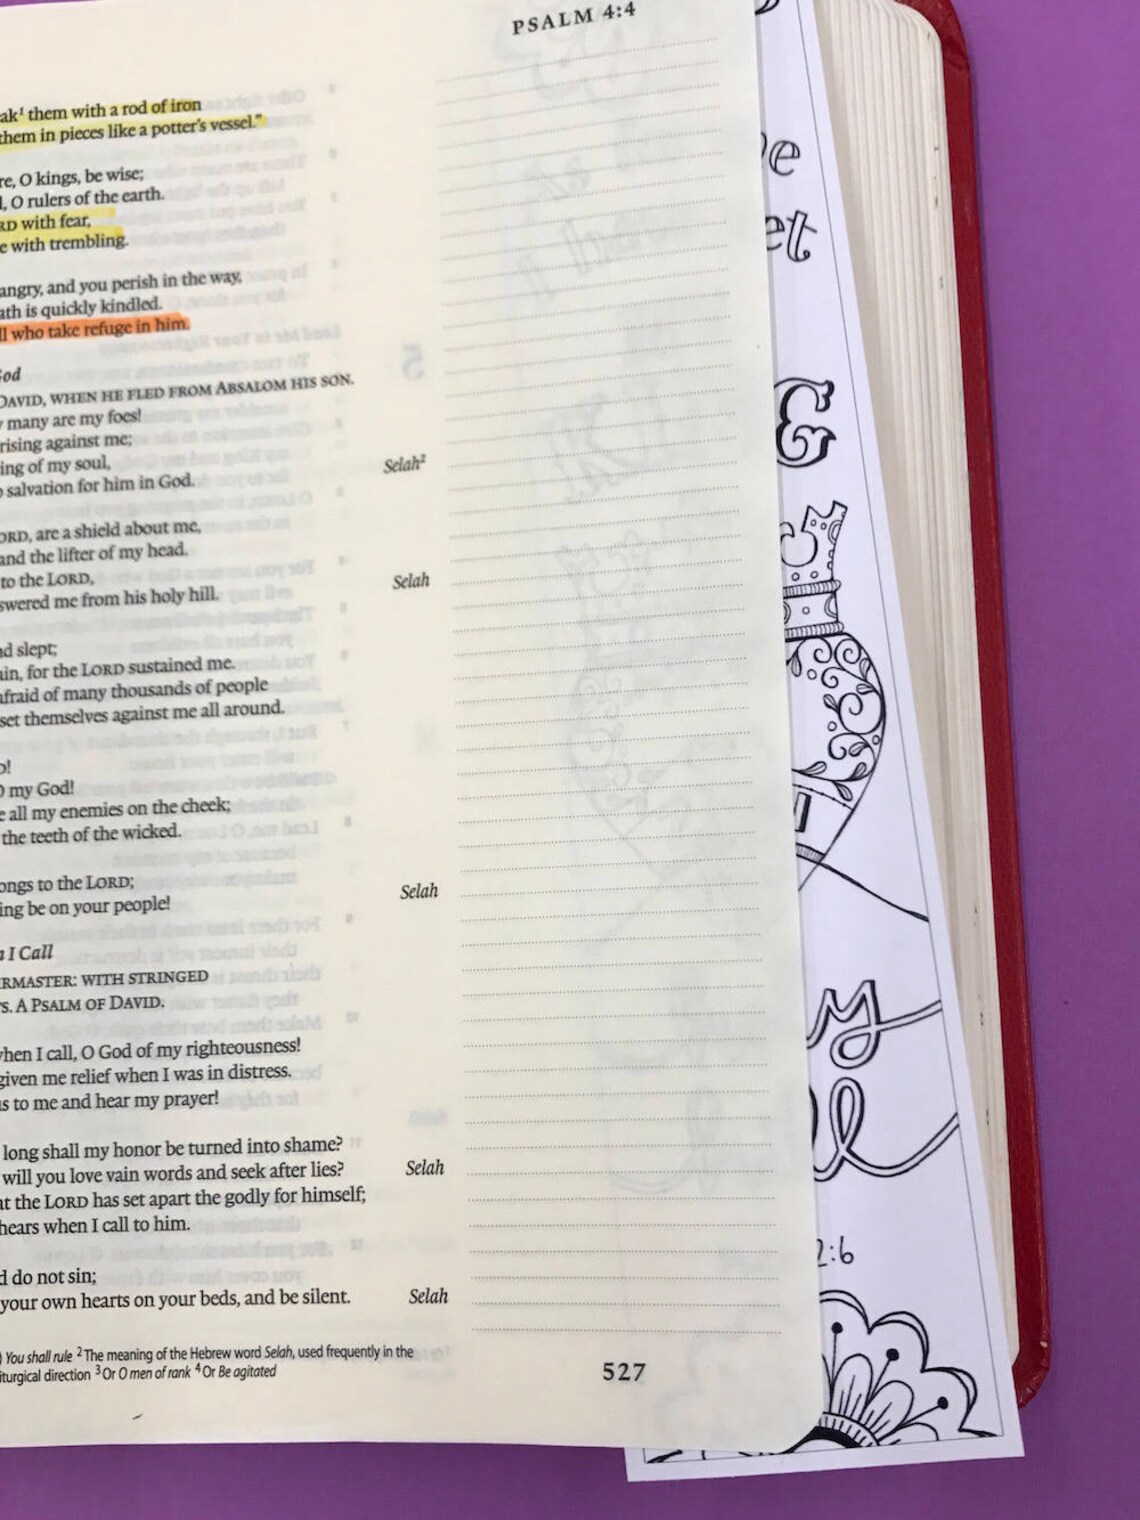 PSALM 4:4
them with a rod of iron
them in pieces like a potter's vessel."
O kings, be wise;
O rulers of the earth.
with fear,
with trembling.
angry, and you perish in the way,
is quickly kindled.
who take refuge in him.
DAVID, WHEN HE FLED FROM ABSALOM HIS SON.
many are my foes!
rising against me;
of my soul, Selah²
salvation for him in God.
are a shield about me,
and the lifter of my head.
to the LORD, Selah
me from his holy hill.
slept;
for the LORD sustained me.
afraid of many thousands of people
set themselves against me all around.
my God!
all my enemies on the cheek;
the teeth of the wicked.
to the LORD; Selah
be on your people!
I Call
WITH STRINGED
A PSALM OF DAVID.
when I call, O God of my righteousness!
given me relief when I was in distress.
to me and hear my prayer!
long shall my honor be turned into shame?
will you love vain words and seek after lies? Selah
the LORD has set apart the godly for himself;
hears when I call to him.
do not sin;
your own hearts on your beds, and be silent. Selah
You shall rule ² The meaning of the Hebrew word Selah, used frequently in the
direction ³ Or O men of rank ⁴ Or Be agitated
527
&
2:6